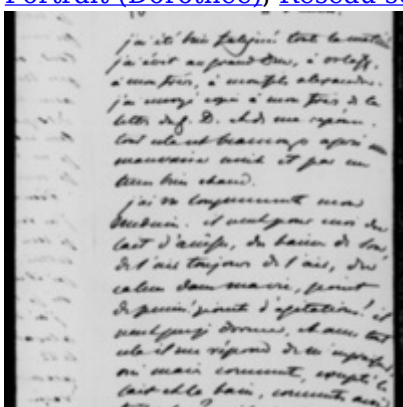 Portrait (Dorothée), Réseau s
j'ai été bien fatiguée toute la matinée
j'ai écrit au grand Duc, à orloff,
à mon frère, à mon fils alexandre.
j'ai envoyé copie à mon frère de la
lettre du g. D. et de ma réponse.
tout cela est beaucoup après une
mauvaise nuit et par un
tems bien chaud.
j'ai vu longuement mon
médecin. il veut pour moi du
lait d'ânesse, du bain de son,
de l'air toujours de l'air, du
calme dans ma vie, point
de peine, point d'agitation! il
veut que je dorme, et avec tout
cela il me répond de
oui mais comment, excepté le
lait et le bain, comment avoir